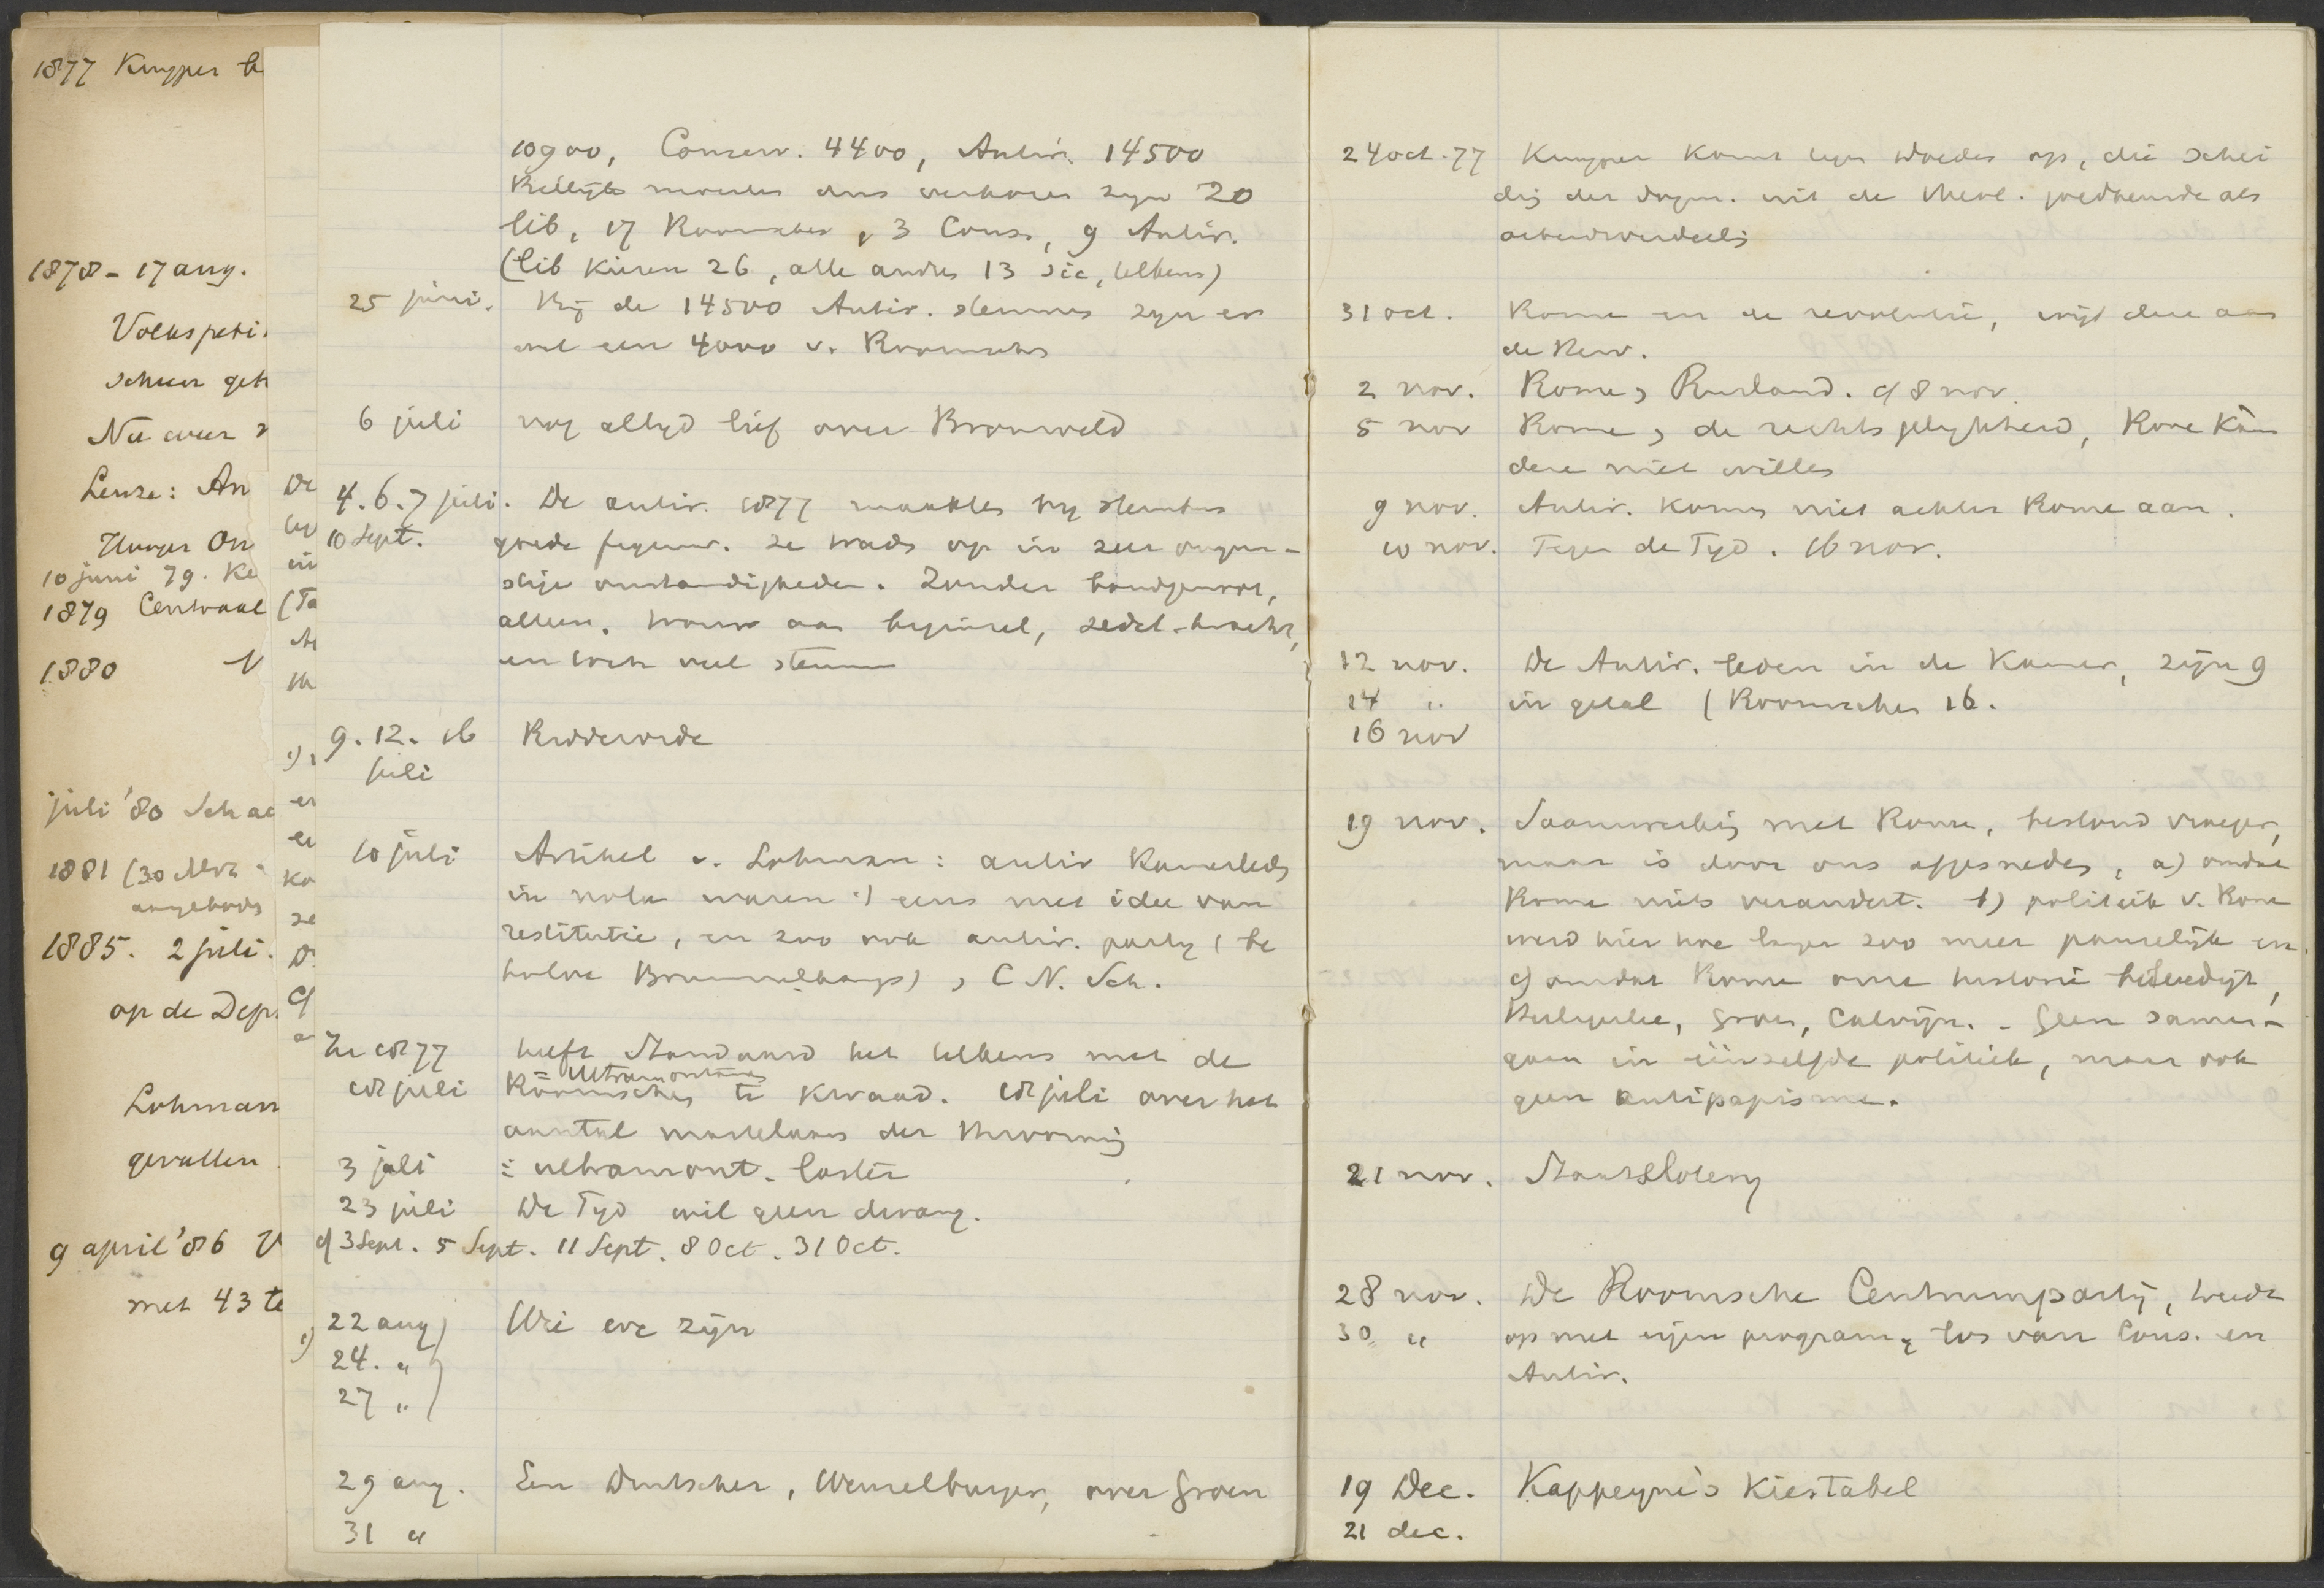 1877 Kuyper
1878 - 17 aug.
Volkspeti
Nu weer
Leuze: An
10 juni 79. Ke
1879 Centraal
1880
juli '80 Schae
1881 (30
1885. 2 juli.
op de Dep.
Lohman
gevallen
9 april '86
met 43 te
10900, Conserv. 4400, Antir. 14500
Billijk moesten dus verkozen zijn 20
lib, 17 Roomschen, 3 Cons., 9 Antir.
(lib kiezen 26, alle andren 13 sic, telkens)
25 juni. Bij de 14500 Antir. stemmen zijn er
wel een 4000 v. Roomschen
6 juli nog altijd lief over Bronsveld
4. 6. 7 juli. De antir. 1877 maakten bij stembus
10 Sept. goede figuur. Ze traden op in zeer ongun-
stige omstandigheden. Zonder bondgenoot,
alleen. trouw aan beginsel, zedel. kracht,
en toch veel stemmen
9. 12. 16 Ridderorde
juli
10 juli Artikel v. Lohman: antir Kamerleden
in nota waren :) eens met idee van
restitutie, en zoo ook antir. partij (be
halve Brummelkamp) > C. N. Sch.
In 1877 heeft Standaard het telkens met de
= Ultramontanen
18 juli Roomschen te kwaad. 18 juli over het
aantal martelaars der Hervorming
3 juli = ultramont. laster
23 juli De Tijd wil geen dwang.
cf 3 Sept. 5 Sept. 11 Sept. 8 Oct. 31 Oct.
1) 22 aug) Wie we zijn
24. "
27 "
29 aug. Een Duitscher, Wenzelburger, over Groen
31 "
24 oct. 77 Kuyper komt tegen op, die schei
ding der dogm. uit de als
arbeidsverdeeling
31 oct. Rome en de revolutie, wijt deze aan
de Herv.
2 nov. Rome > Rusland. cf 8 nov.
5 nov Rome > de rechtsgelijkheid, Rome kàn
deze niet willen
9 nov. Antir. komen niet achter Rome aan.
10 nov. Tegen de Tijd. 16 nov.
12 nov. De Antir. leden in de Kamer, zijn 9
14 " in getal (Roomschen 16.
16 nov
19 nov. Saamwerking met Rome, bestond vroeger,
maar is door ons afgesneden, a) omdat
Rome niets verandert. b) politiek v. Rome
werd hier hoe langer zoo meer pauselijk en
c) omdat Rome onze historie beleedigt,
Heiligerlee, Groen, Calvijn. - Geen samen-
gaan in éénzelfde politiek, maar ook
geen antipapisme.
21 nov. Staatsloterij
28 nov. De Roomsche Centrumpartij, treedt
30 " op met eigen program, los van Cons. en
Antir.
19 Dec. Kappeyne's Kiestabel
21 dec.